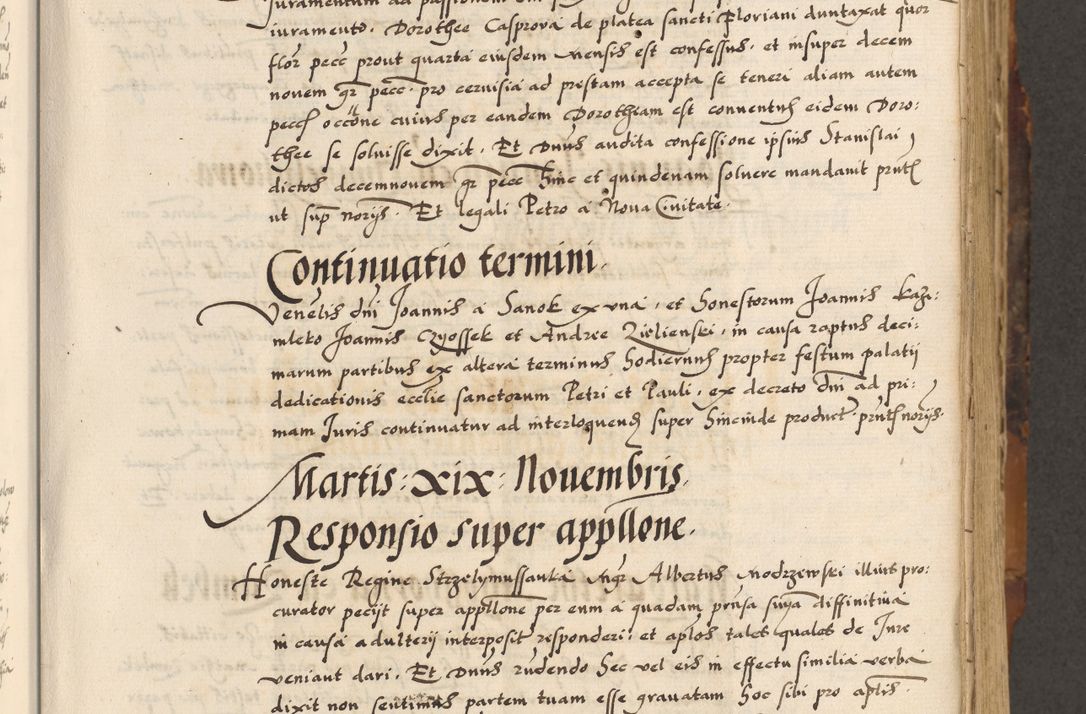 iuramentum ad passionem
iuramento. Dorothee Casprova de platea sancti Floriani duntaxat quor
flor pecc prout quarta eiusdem mensis est confessus. et insuper decem
novem gr pecc. pro cervisia ad prestam accepta se teneri aliam autem
pecch occone cuius per eandem Dorothiam est conventus eidem Doro:
thee se soluisse dixit. Et Dnus audita confessione ipsius Stanislai
dictos decemnovem gr pecc hinc et quindenam soluere mandauit prntibus
ut sup norijs. Et legali Petro a Nova Civitate.
Continuatio termini.
Venelis dni Joannis a Sanok ex una. et Honestorum Joannis Kazi:
mleko Joannis Czyossek et Andree Zielienski. in causa raptus deci:
marum partibus ex altera terminus hodiernus propter festum palatij
dedicationis ecclie sanctorum Petri et Pauli. ex decreto dni ad pri:
mam Juris continuatur ad interloquendum super hincinde product. prntibus norijs.
Martis: xix: Novembris.
Responsio super appllone.
Honeste Regine Strzelymussanka Mgr Albertus Modrzewski illius pro:
curator pecijt super appllone per eum a quadam prnsa snia diffinitiva
in causa adulterij interposit responderi. et aplos tales quales de Jure
veniant dari. Et Dnus cudendo hec vel eis in effectu similia verba
dixit non sentimus partem tuam esse gravatam hoc sibi pro aplis.